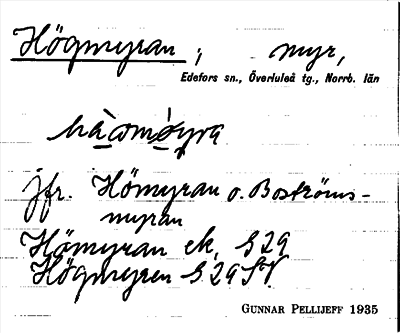 Högmyran; myr,
Edefors sn., Överluleå tg., Norrb. län
jfr. Hömyran o. Boströms-
myran
Hömyran ek. G 29
Högmyren G 29 SV.
GUNNAR PELLIJEFF 1935